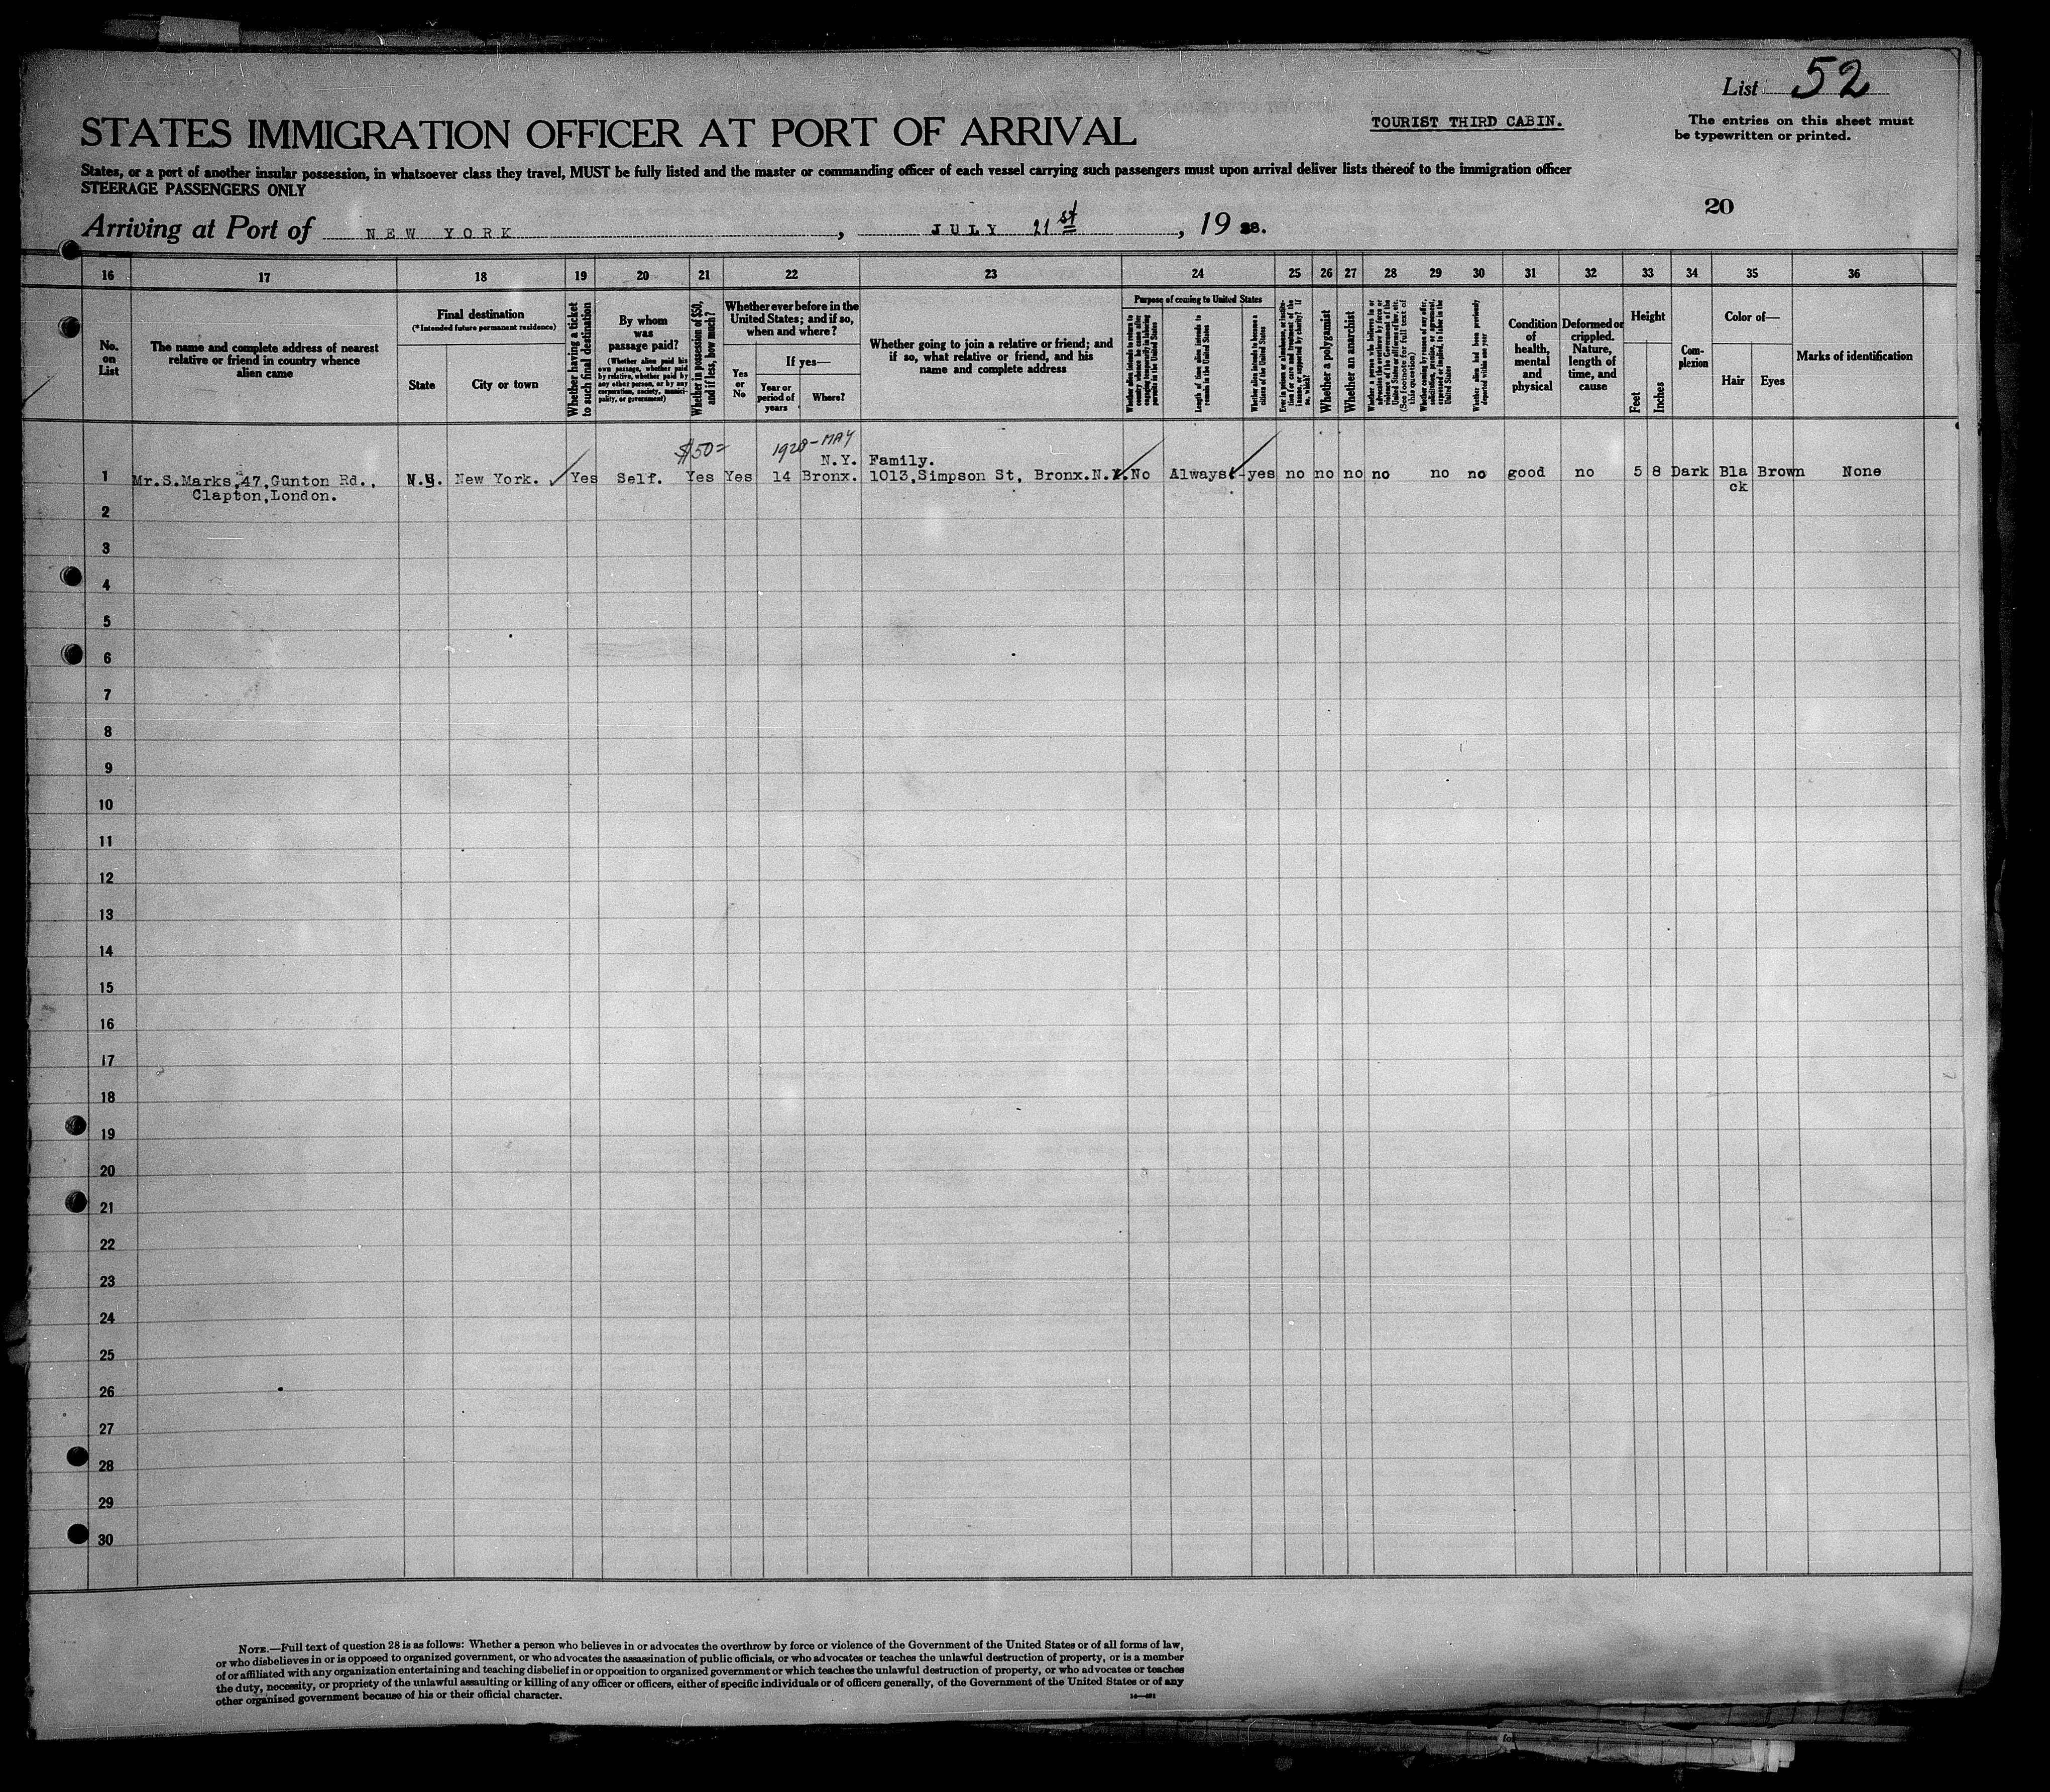 List 52
STATES IMMIGRATION OFFICER AT PORT OF ARRIVAL
TOURIST THIRD CABIN.
The entries on this sheet must
be typewritten or printed.
States, or a port of another insular possession, in whatsoever class they travel, MUST be fully listed and the master or commanding officer of each vessel carrying such passengers must upon arrival deliver lists thereof to the immigration officer
STEERAGE PASSENGERS ONLY
20
Arriving at Port of NEW YORK, JULY 21st, 19 28.
16 17 18 19 20 21 22 23 24 25 26 27 28 29 30 31 32 33 34 35 36
No. on List
The name and complete address of nearest
relative or friend in country whence
alien came
Final destination
(*Intended future permanent residence)
State
City or town
Whether having a ticket
to such final destination
By whom
was
passage paid?
(Whether alien paid his
own passage, whether paid
by relative, whether paid by
any other person, or by any
corporation, society, munici-
pality, or government)
Whether in possession of $50,
and if less, how much?
Whether ever before in the
United States; and if so,
when and where?
Yes
or
No
If yes—
Year or
period of
years
Where?
Whether going to join a relative or friend; and
if so, what relative or friend, and his
name and complete address
Purpose of coming to United States
Length of time alien intends to
remain in the United States
Whether alien intends to become a
citizen of the United States
Whether a polygamist
Whether an anarchist
Whether alien had been previously
deported within one year
Condition
of
health,
mental
and
physical
Deformed or
crippled.
Nature,
length of
time, and
cause
Height
Feet
Inches
Com-
plexion
Color of—
Hair
Eyes
Marks of identification
$50= 1928-MAY
N.Y. Family.
1 Mr.S.Marks,47,Gunton Rd., N.Y. New York. Yes Self. Yes Yes 14 Bronx. 1013,Simpson St, Bronx.N.Y. No Always yes no no no no no no good no 5 8 Dark Bla Brown None
Clapton,London. ck
2
3
4
5
6
7
8
9
10
11
12
13
14
15
16
17
18
19
20
21
22
23
24
25
26
27
28
29
30
NOTE.—Full text of question 28 is as follows: Whether a person who believes in or advocates the overthrow by force or violence of the Government of the United States or of all forms of law,
or who disbelieves in or is opposed to organized government, or who advocates the assassination of public officials, or who advocates or teaches the unlawful destruction of property, or is a member
of or affiliated with any organization entertaining and teaching disbelief in or opposition to organized government or which teaches the unlawful destruction of property, or who advocates or teaches
the duty, necessity, or propriety of the unlawful assaulting or killing of any officer or officers, either of specific individuals or of officers generally, of the Government of the United States or of any
other organized government because of his or their official character.